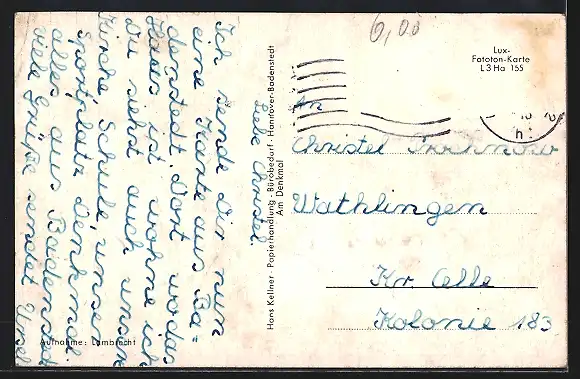 6,00
Lux-
Fototon-Karte
L3Ha 155
Liebe Christel
Ich sende Dir nun
eine Karte aus Ba-
denstedt. Dort wo das
Haus ist wohne ich
Du siehst auch unsere
Kirche, Schule, unser
Sportplatz, Denkmal.
alles aus Badenstedt
viele Grüße sendet Ursel
Aufnahme: Lambrecht
Hans Kellner - Papierhandlung - Bürobedarf - Hannover-Badenstedt
Am Denkmal
An
Christel
Wathlingen
Kr. Celle
Kolonie 183
h